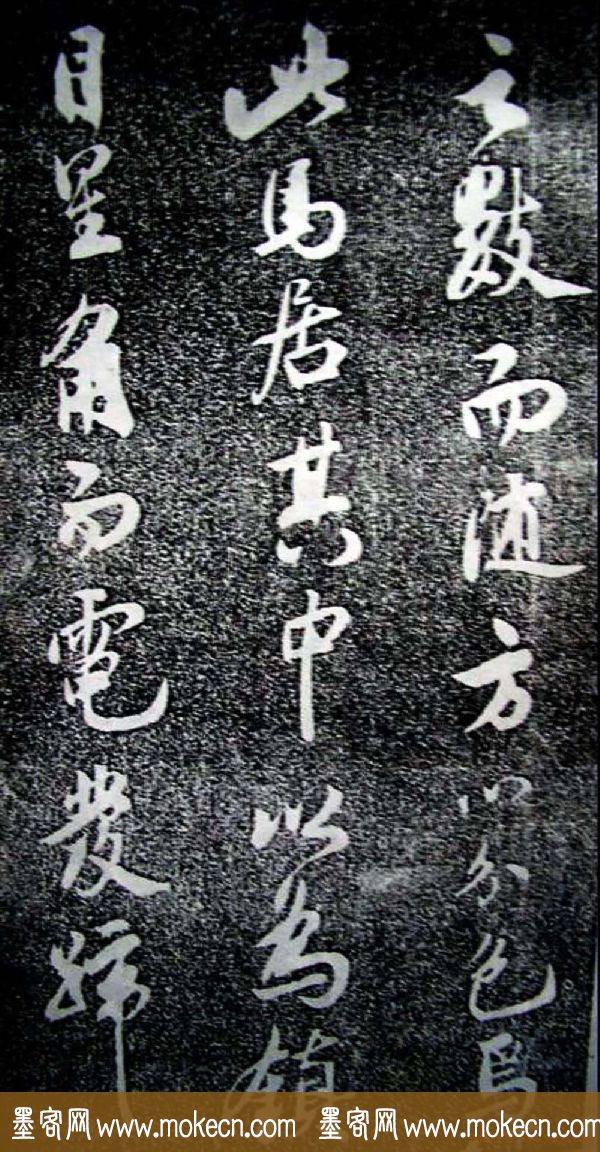 之數而随方以分色焉
此馬居其中以為鎮
目星角而電發蹄
墨客网 www.mokecn.com 墨客网 www.mokecn.com